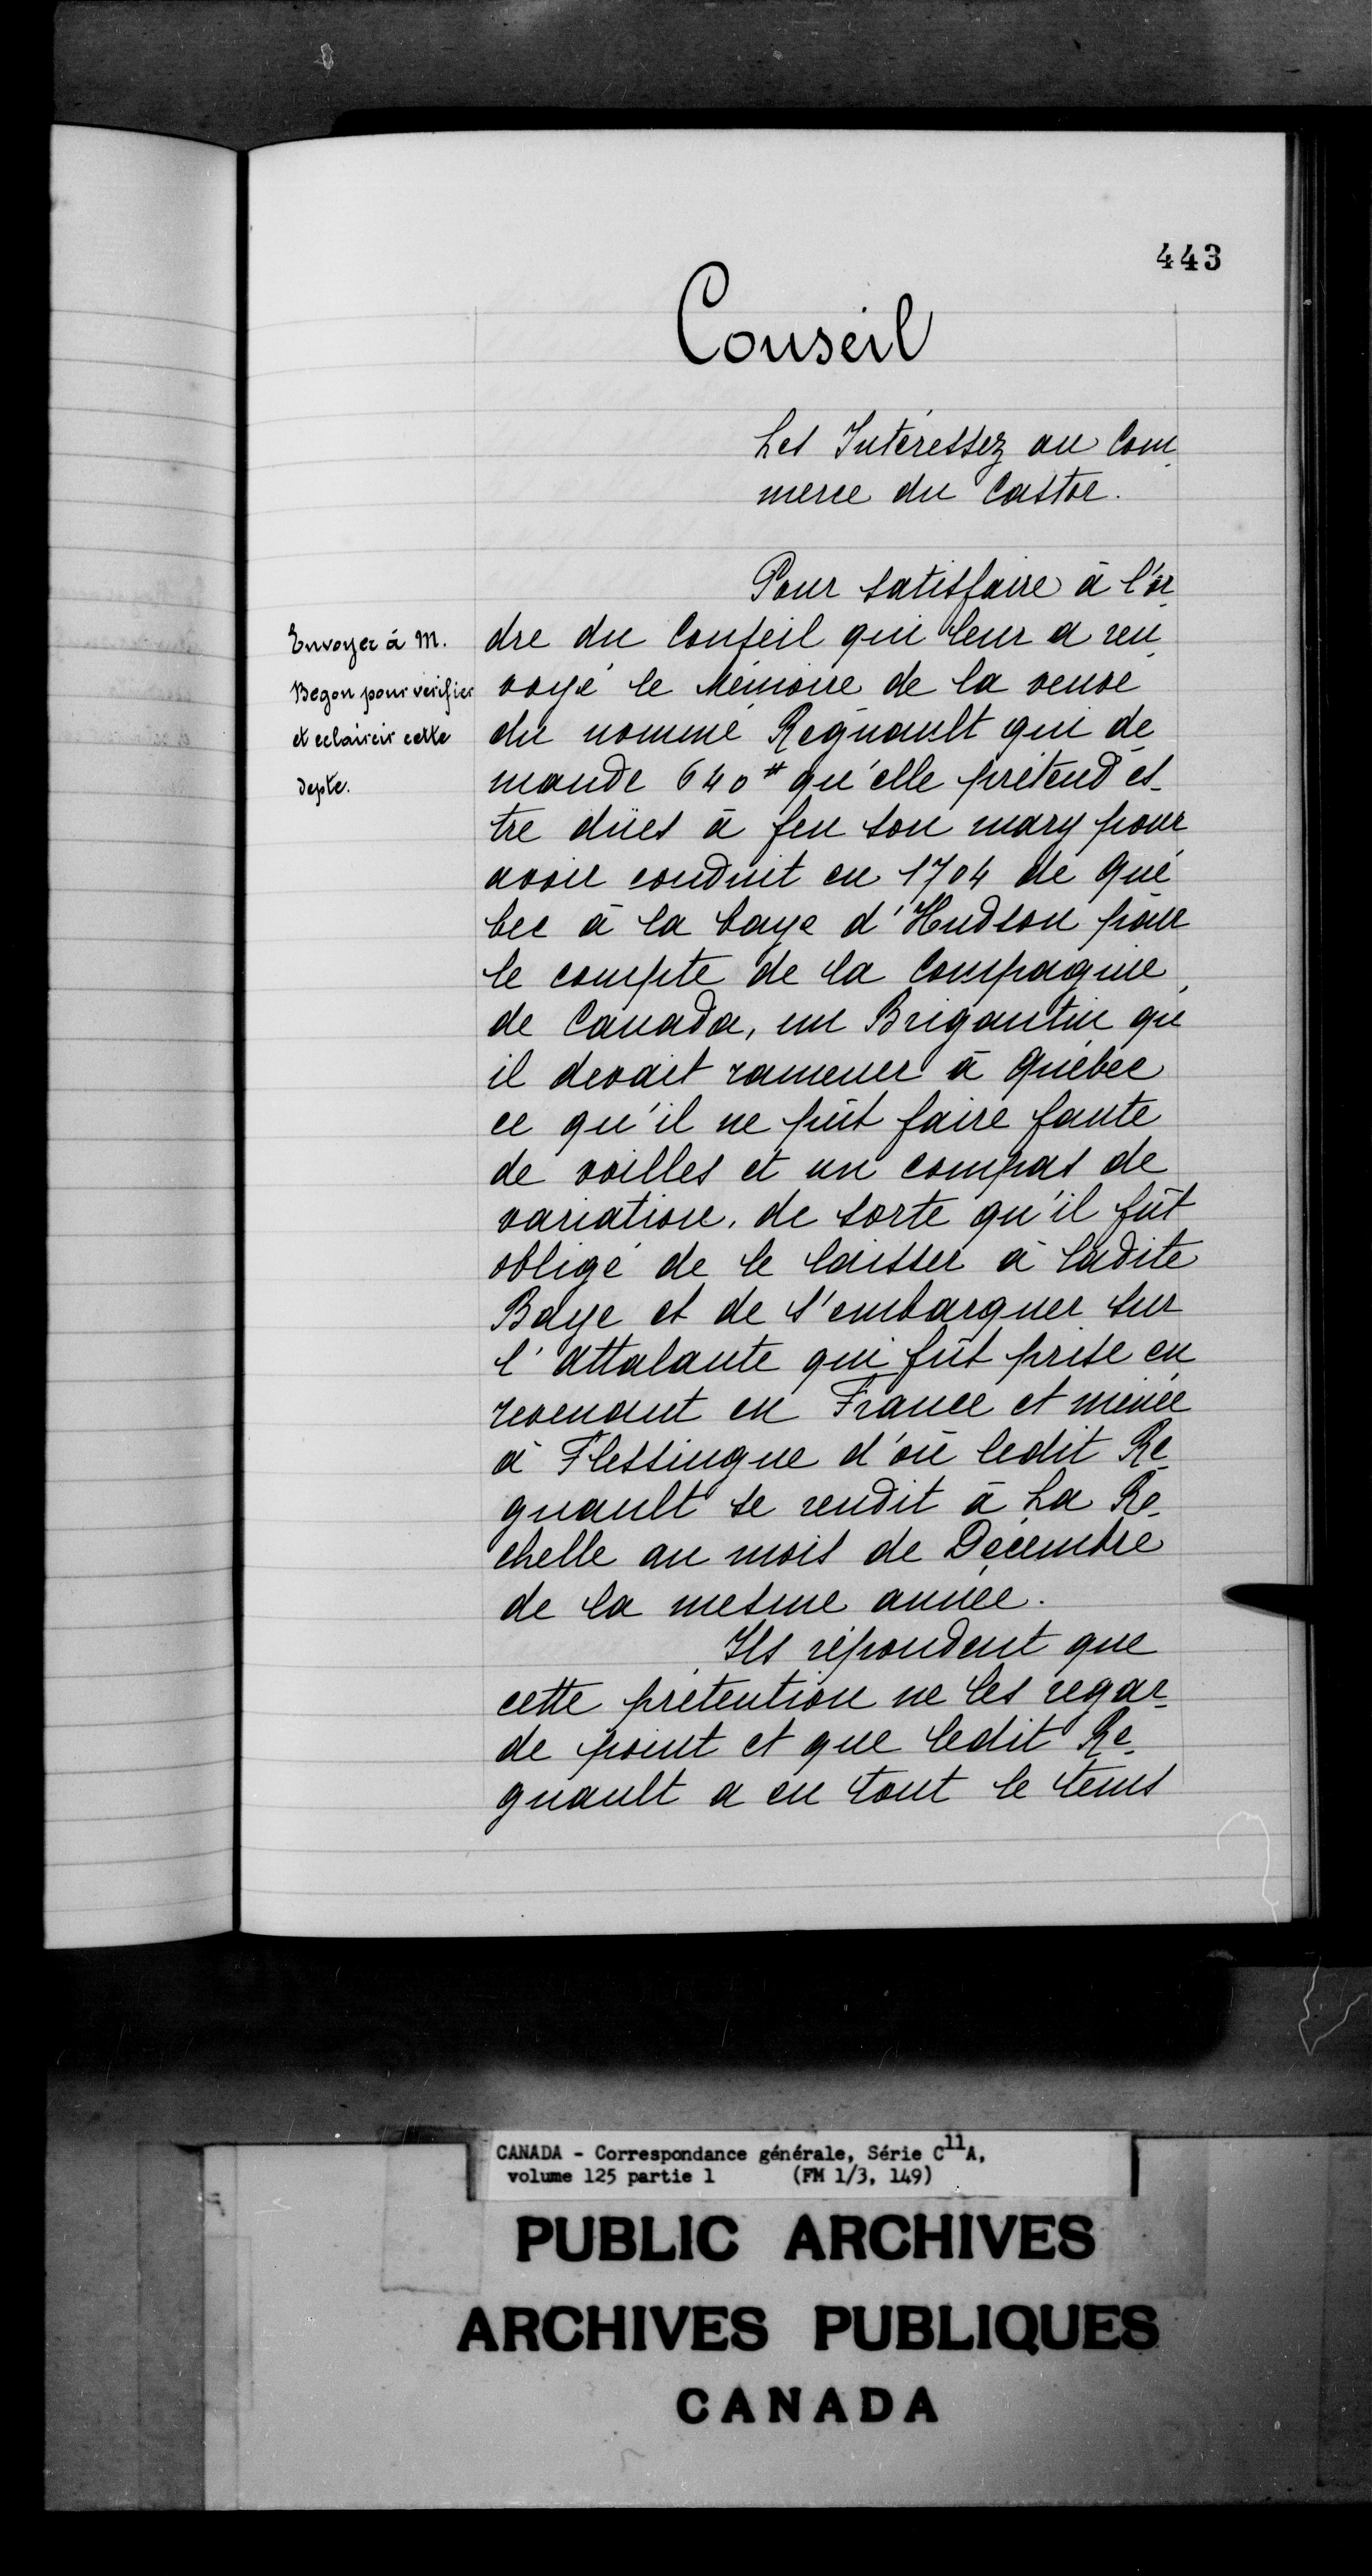 443
Conseil
Les Intéressez au Com-
merce du Castor.
Pour satisfaire à l'or-
dre du Conseil qui leur a ren-
voyé le Mémoire de la veuve
du nommé Regnault qui de-
mande 640# qu'elle prétend es-
tre düës à feu son mary pour
avoir conduit en 1704 de Qué-
bec à la baye d'Hudson pour
le compte de la Compagnie
de Canada, un Brigantin qu'
il devait ramener à Québec
ce qu'il ne pût faire faute
de voilles et un compas de
variation, de sorte qu'il fût
obligé de le laisser à ladite
Baye et de s'embarquer sur
l'Attalante qui fût prise en
revenant en France et menée
à Flessingue d'où ledit Re-
gnault se rendit à La Ro-
chelle au mois de Décembre
de la mesme année.
Ils répondent que
cette prétention ne les regar-
de point et que ledit Re-
gnault a eu tout le tems
Envoyer à M.
Begon pour verifier
et eclaircir cette
depte.
CANADA - Correspondance générale, Série C11A,
volume 125 partie 1 (FM 1/3, 149)
PUBLIC ARCHIVES
ARCHIVES PUBLIQUES
CANADA